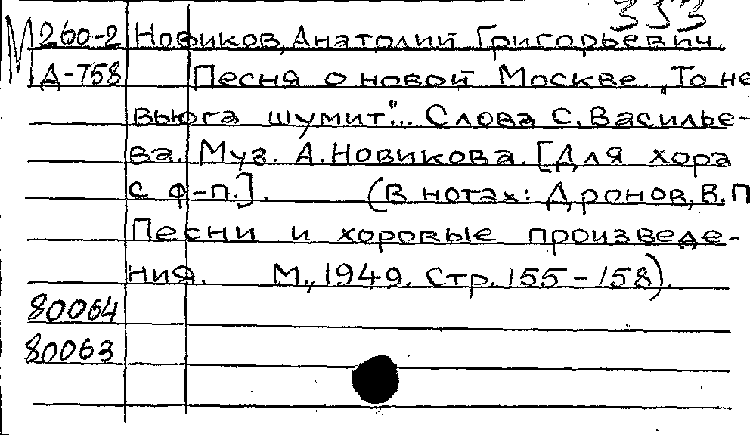 353
М 260-2 Новиков, Анатолий Григорьевич.
Д-758 Песня о новой Москве. „То не
вьюга шумит"... Слова С. Василье-
ва. Муз. А. Новикова. [Для хора
с ф-п.]. (В нотах: Дронов, В. П
Песни и хоровые произведе-
ния. М., 1949. Стр. 155-158).
80064
80063